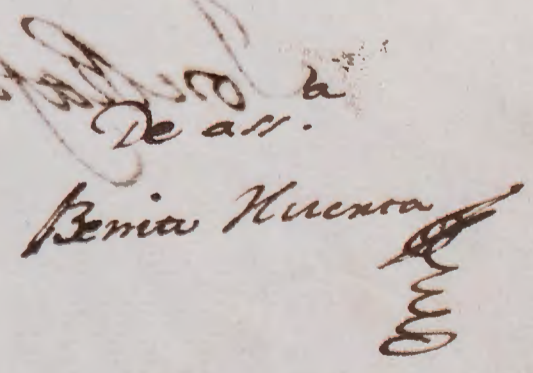 De ass.ª
Benita Huerta